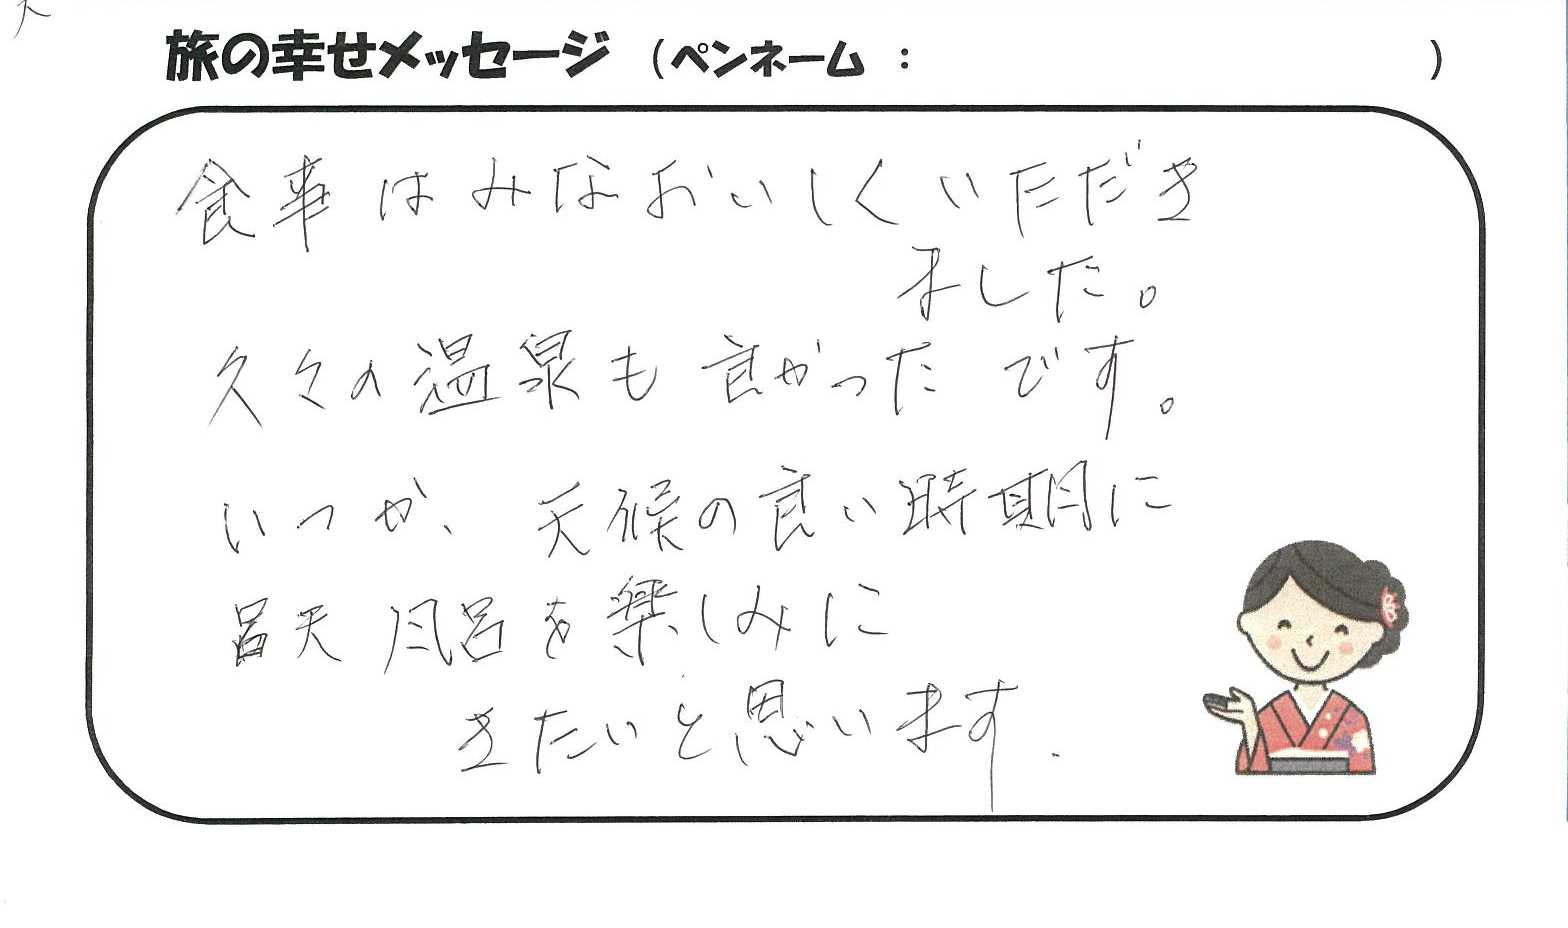 旅の幸せメッセージ (ペンネーム : )
食事はみなおいしくいただき
ました。
久々の温泉も良かったです。
いつか、天候の良い時期に
呂天風呂を楽しみに
きたいと思います.